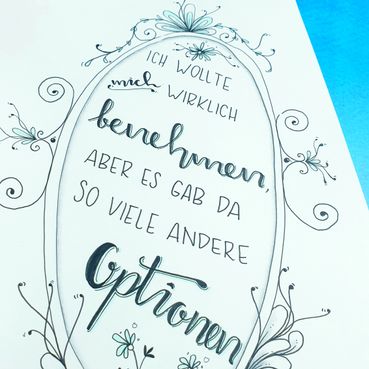 ICH WOLLTE
mich WIRKLICH
benehmen,
ABER ES GAB DA
SO VIELE ANDERE
Optionen